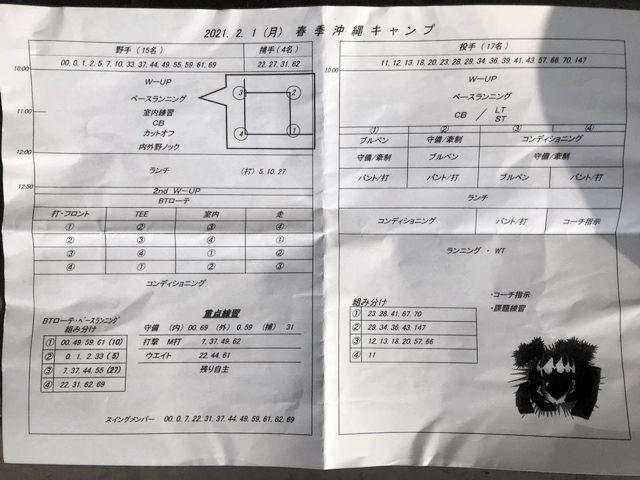 2021. 2. 1 (月) 春季沖縄キャンプ
野手 (15名)
捕手 (4名)
00. 0. 1. 2. 5. 7. 10. 33. 37. 44. 49. 55. 59. 61. 69
22. 27. 31. 62
10:00
W－UP
ベースランニング
3
2
4
1
11:00
室内練習
CB
カットオフ
内外野ノック
12:00
ランチ
(打) 5. 10. 27
12:50
2nd W－UP
BTローテ
打・フロント TEE 室内 走
① ② ③ ④
② ③ ④ ①
③ ④ ① ②
④ ① ② ③
コンディショニング
BTローテ・ベースランニング
組み分け
① 00. 49. 59. 61 (10)
② 0. 1. 2. 33 (5)
③ 7. 37. 44. 55 (27)
④ 22. 31. 62. 69
重点練習
守備 (内) 00. 69 (外) 0. 59 (捕) 31
打撃 M打 7. 37. 49. 62
ウエイト 22. 44. 61
残り自主
スイングメンバー 00. 0. 7. 22. 31. 37. 44. 49. 59. 61. 62. 69
投手 (17名)
11. 12. 13. 18. 20. 23. 28. 29. 34. 36. 39. 41. 43. 57. 66. 70. 147
10:00
W－UP
ベースランニング
CB / LT
ST
① ② ③ ④
ブルペン 守備/牽制 コンディショニング
守備/牽制 ブルペン 守備/牽制
バント/打 バント/打 ブルペン バント/打
ランチ
コンディショニング バント/打 コーチ指示
ランニング ・ WT
組み分け
① 23. 28. 41. 67. 70
② 29. 34. 36. 43. 147
③ 12. 13. 18. 20. 57. 66
④ 11
・コーチ指示
・課題練習